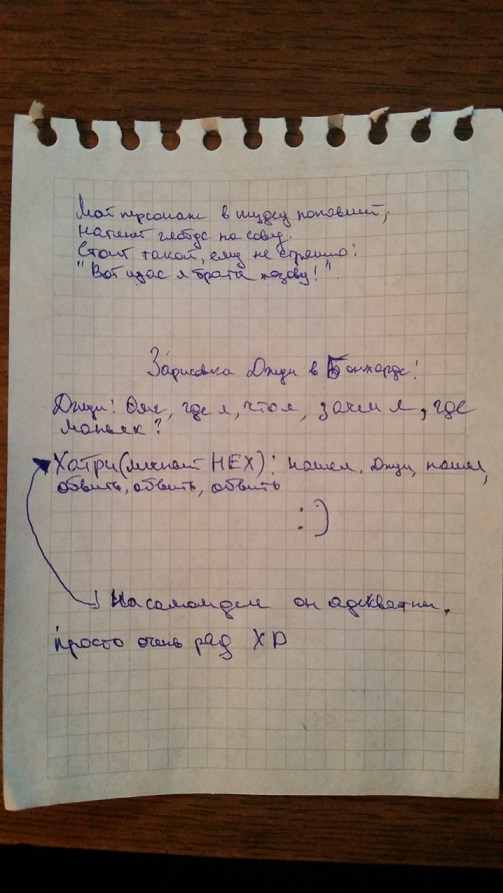 Мой персонаж в пизцу попавший,
натянет глобус на сову.
Стоит такой, ему не страшно:
"Вот щас я брата позову!".
Зарисовка Джун в Бонхарде!
Джун: Омг, где я, что я, зачем я, где
маньяк?
Хатри(личный НЕХ): нашел, Джун, нашел,
обвить, обвить, обвить
:)
На самом деле он адекватный,
просто очень рад XD